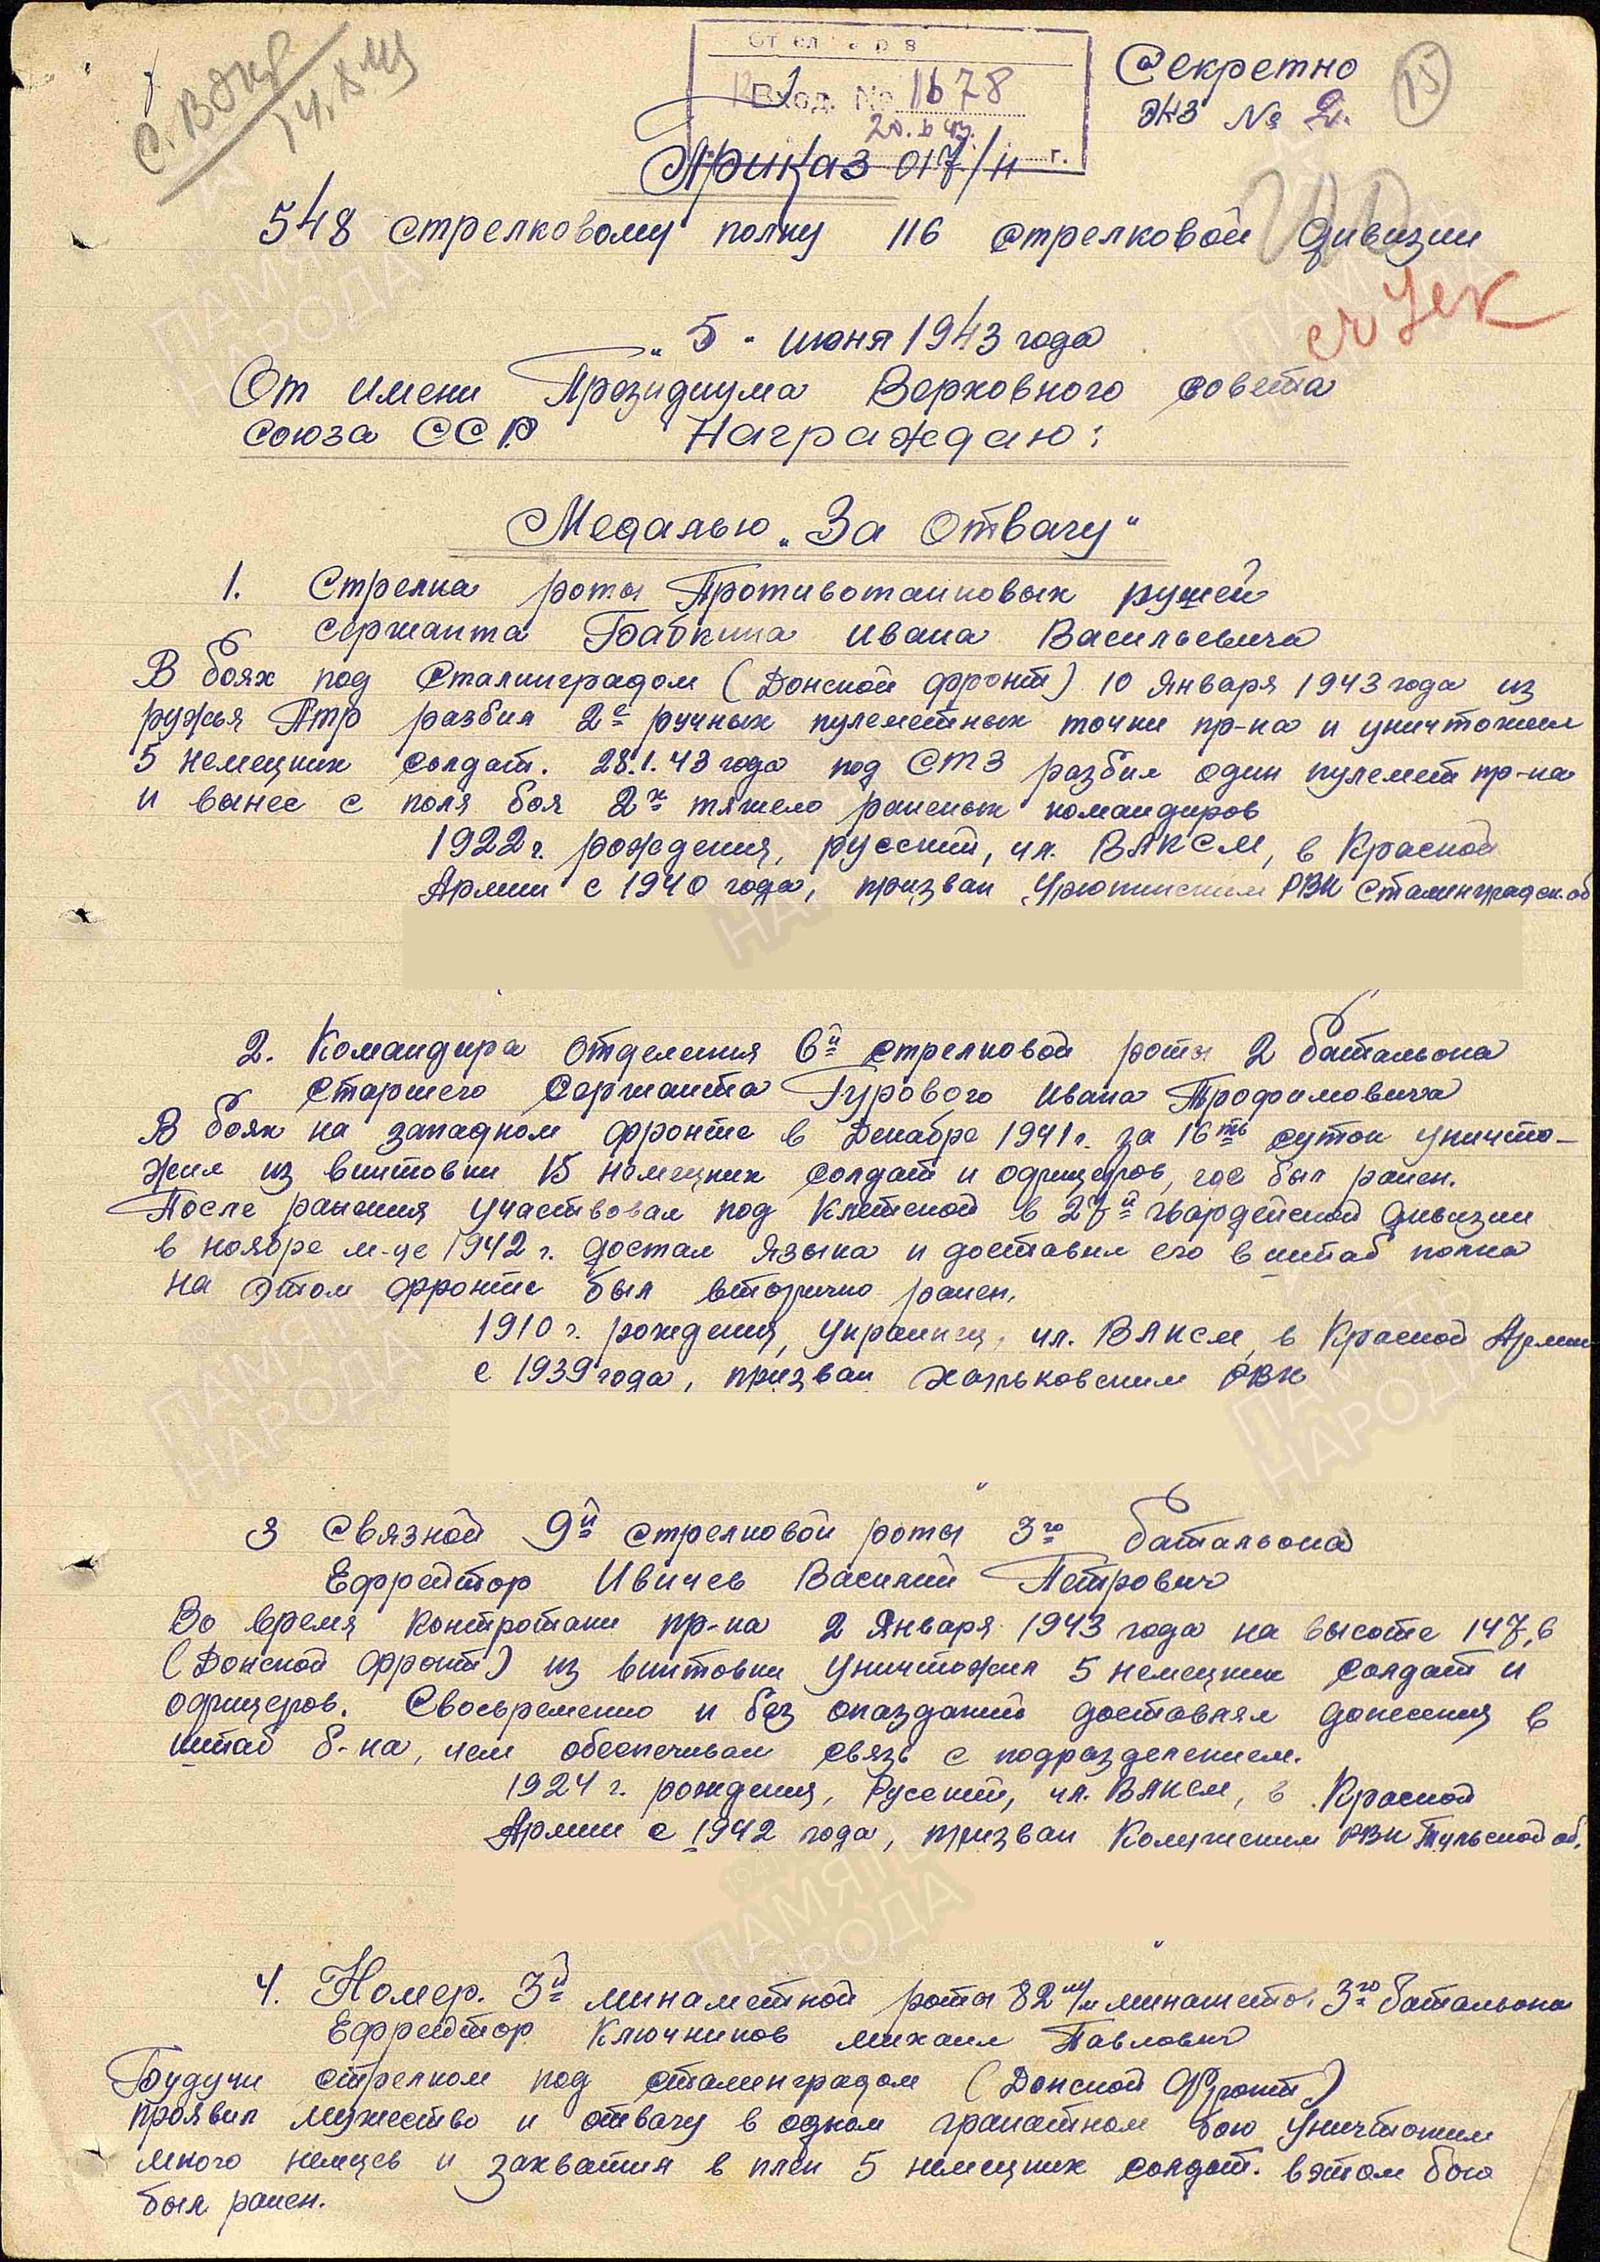 Секретно
экз № 2.
15
Вход. № 1678
20.6.43.
Приказ 017/н
г.
548 стрелковому полку 116 стрелковой дивизии
"5" июня 1943 года
От имени Президиума Верховного совета
союза ССР Награждаю:
Медалью "За Отвагу"
1. Стрелка роты Противотанковых ружей
сержанта Бабкина Ивана Васильевича
В боях под Сталинградом (Донской фронт) 10 января 1943 года из
ружья Птр разбил 2е ручных пулеметных точки пр-ка и уничтожил
5 немецких солдат. 28.1.43 года под СТЗ разбил один пулемет пр-ка
и вынес с поля боя 2х тяжело раненых командиров
1922 г. рождения, русский, чл. ВЛКСМ, в Красной
Армии с 1940 года, призван Урюпинским РВК Сталинградск. об
2. Командира отделения 6й стрелковой роты 2 батальона
старшего Сержанта Гурового Ивана Трофимовича
В боях на западном фронте в Декабре 1941 г. за 16ть суток уничто-
жил из винтовки 15 немецких солдат и офицеров, где был ранен.
После ранения участвовал под Клетской в 27й гвардейской дивизии
в ноябре м-це 1942 г. достал языка и доставил его в штаб полка
на этом фронте был вторично ранен.
1910 г. рождения, украинец, чл. ВЛКСМ, в Красной Армии
с 1939 года, призван Харьковским РВК
3 Связной 9й стрелковой роты 3го батальона
Ефрейтор Ивичев Василий Петрович
Во время контротаки пр-ка 2 Января 1943 года на высоте 147,6
(Донской фронт) из винтовки уничтожил 5 немецких солдат и
офицеров. Своевременно и без опазданий доставлял донесения в
штаб б-на, чем обеспечивал связь с подразделением.
1924 г. рождения, Русский, чл. ВЛКСМ, в Красной
Армии с 1942 года, призван Калужским РВК Тульской об.
4. Номер. 3й минаметной роты 82 м/м минамета. 3го батальона
Ефрейтор Ключников михаил Павлович
Будучи стрелком под сталинградом (Донской Фронт)
проявил мужество и отвагу в одном гранатном бою уничтожил
много немцев и захватил в плен 5 немецких солдат. в этом бою
был ранен.